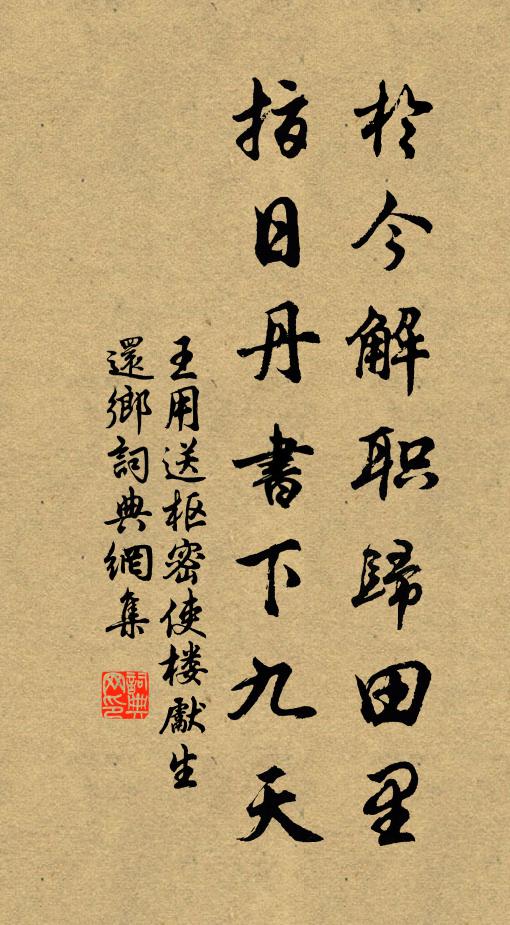 於今解职歸田里
指日丹書下九天
王用送枢密使楼獻生
還鄉詞典網集
詞典網印